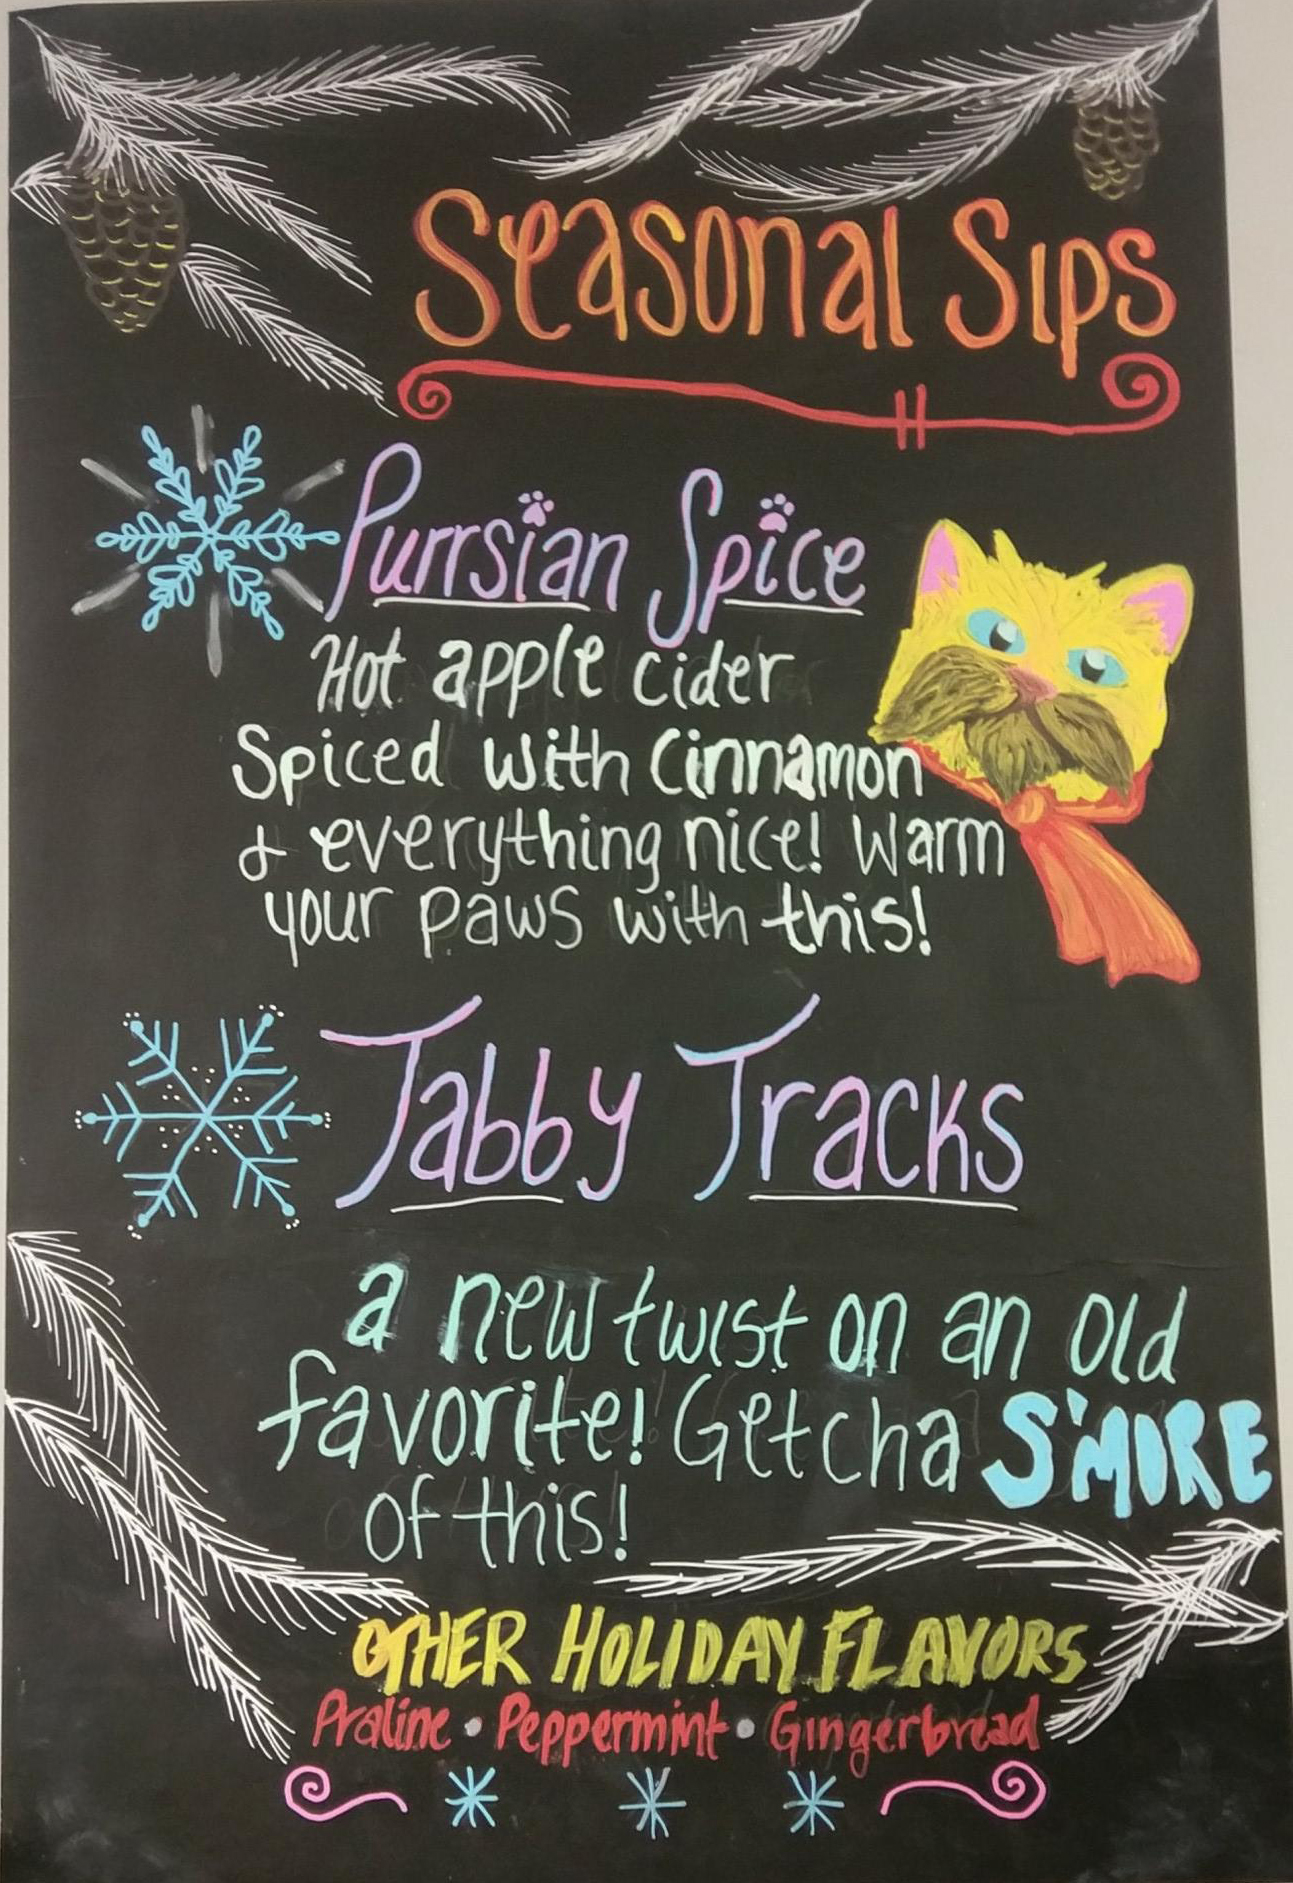 Seasonal Sips
Purrsian Spice
Hot apple cider
Spiced with Cinnamon
& everything nice! Warm
your paws with this!
Tabby Tracks
a new twist on an old
favorite! Getcha S'MORE
of this!
OTHER HOLIDAY FLAVORS
Praline • Peppermint • Gingerbread